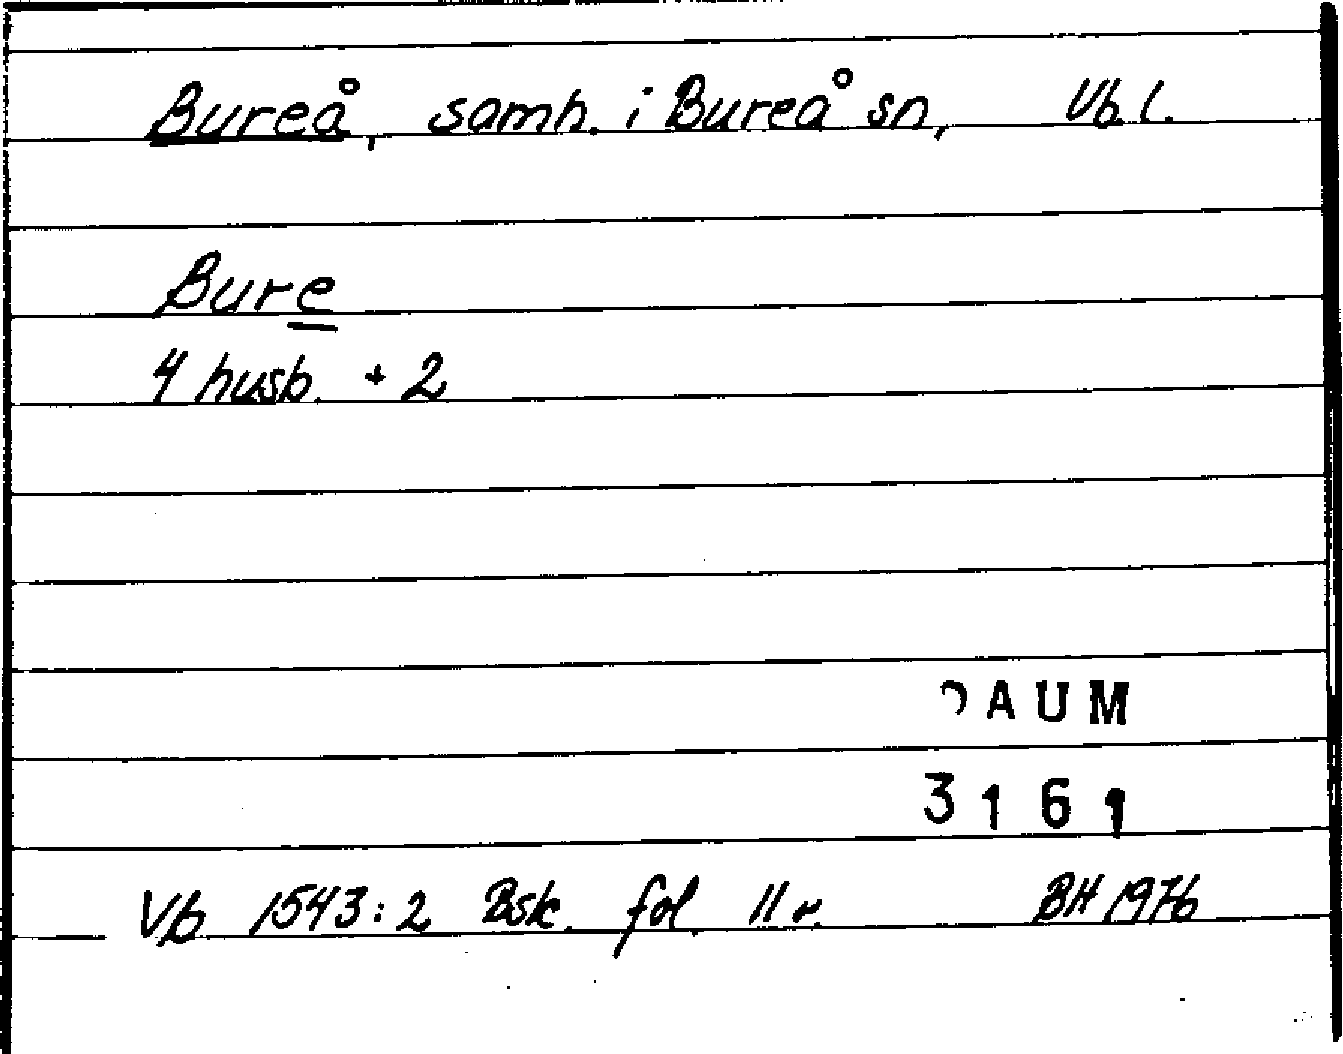 Bureå, samh. i Bureå sn, Vb. l.
Bure
4 husb. + 2
DAUM
3161
Vb 1543:2 Bsk. fol. 11 r. BH 1976